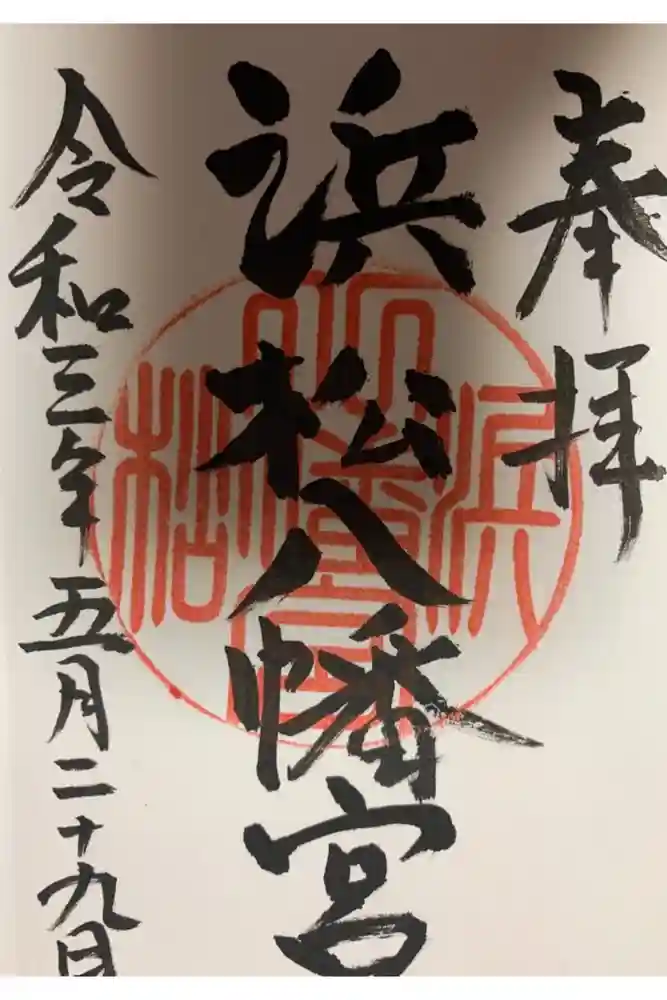 奉拝
浜松八幡宮
令和三年五月二十九日